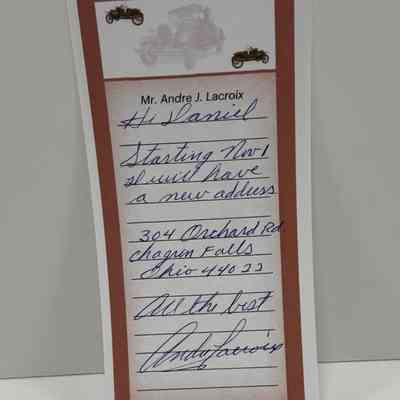 Mr. Andre J. Lacroix
Hi Daniel
Starting Nov 1
I will have
a new address
304 Orchard Rd.
Chagrin Falls
Ohio 44022
All the best
Andy Lacroix